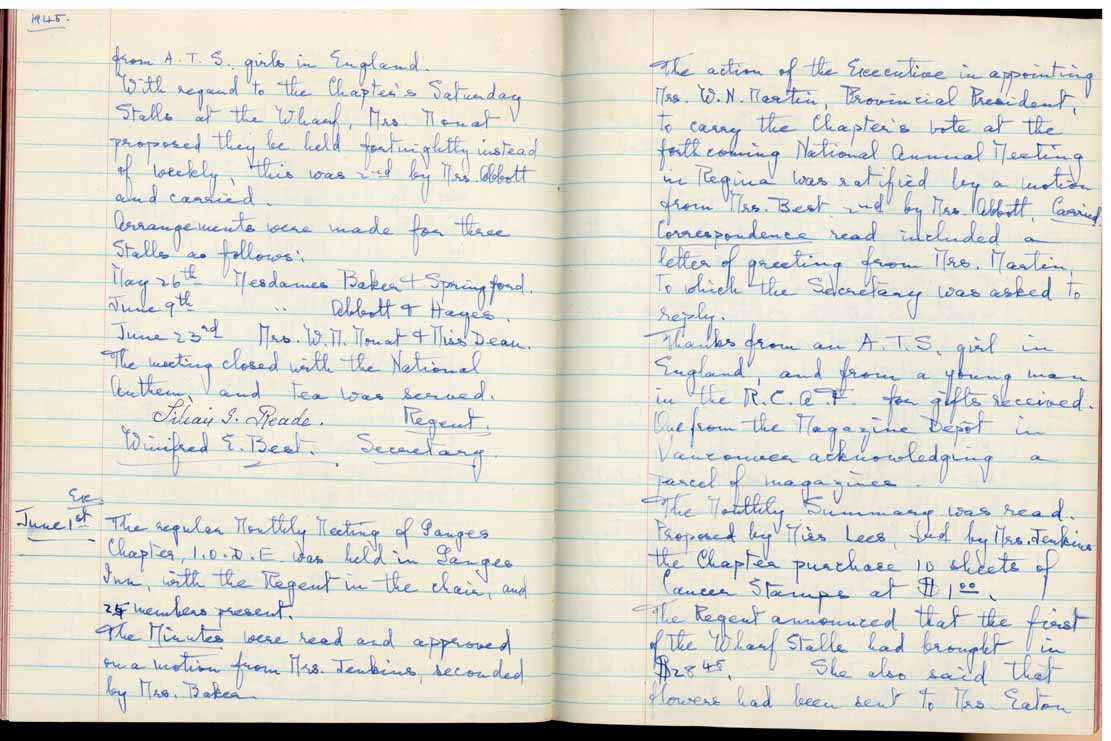 1945.
from A.T.S. girls in England.
With regard to the Chapter's Saturday
Stalls at the Wharf, Mrs. Mouat
proposed they be held fortnightly instead
of weekly, this was 2nd by Mrs. Abbott
and carried.
Arrangements were made for three
Stalls as follows:
May 26th Mesdames Baker & Springford.
June 9th " Abbott & Hayes.
June 23rd Mrs. W.M. Mouat & Miss Dean.
The meeting closed with the National
Anthem, and tea was served.
Reade. Regent.
Winifred E. Best. Secretary.
June 1st
The regular Monthly Meeting of Ganges
Chapter, I.O.D.E. was held in Ganges
Inn, with the Regent in the chair, and
members present.
The Minutes were read and approved
on a motion from Mrs. Jenkins, seconded
by Mrs. Baker
The action of the Executive in appointing
Mrs. W.N. Martin, Provincial President,
to carry the Chapter's vote at the
forthcoming National Annual Meeting
in Regina was ratified by a motion
from Mrs. Best 2nd by Mrs. Abbott, Carried
Correspondence read included a
letter of greeting from Mrs. Martin,
to which the Secretary was asked to
reply.
Thanks from an A.T.S. girl in
England, and from a young man
in the R.C.A.F. for gifts received.
One from the Magazine Depôt in
Vancouver acknowledging a
parcel of magazines.
The Monthly Summary was read.
Proposed by Miss Lees, 2nd by Mrs. Jenkins
the Chapter purchase 10 sheets of
Cancer Stamps at $1.00.
The Regent announced that the first
of the Wharf Stalls had brought in
$28.45. She also said that
flowers had been sent to Mrs. Eaton